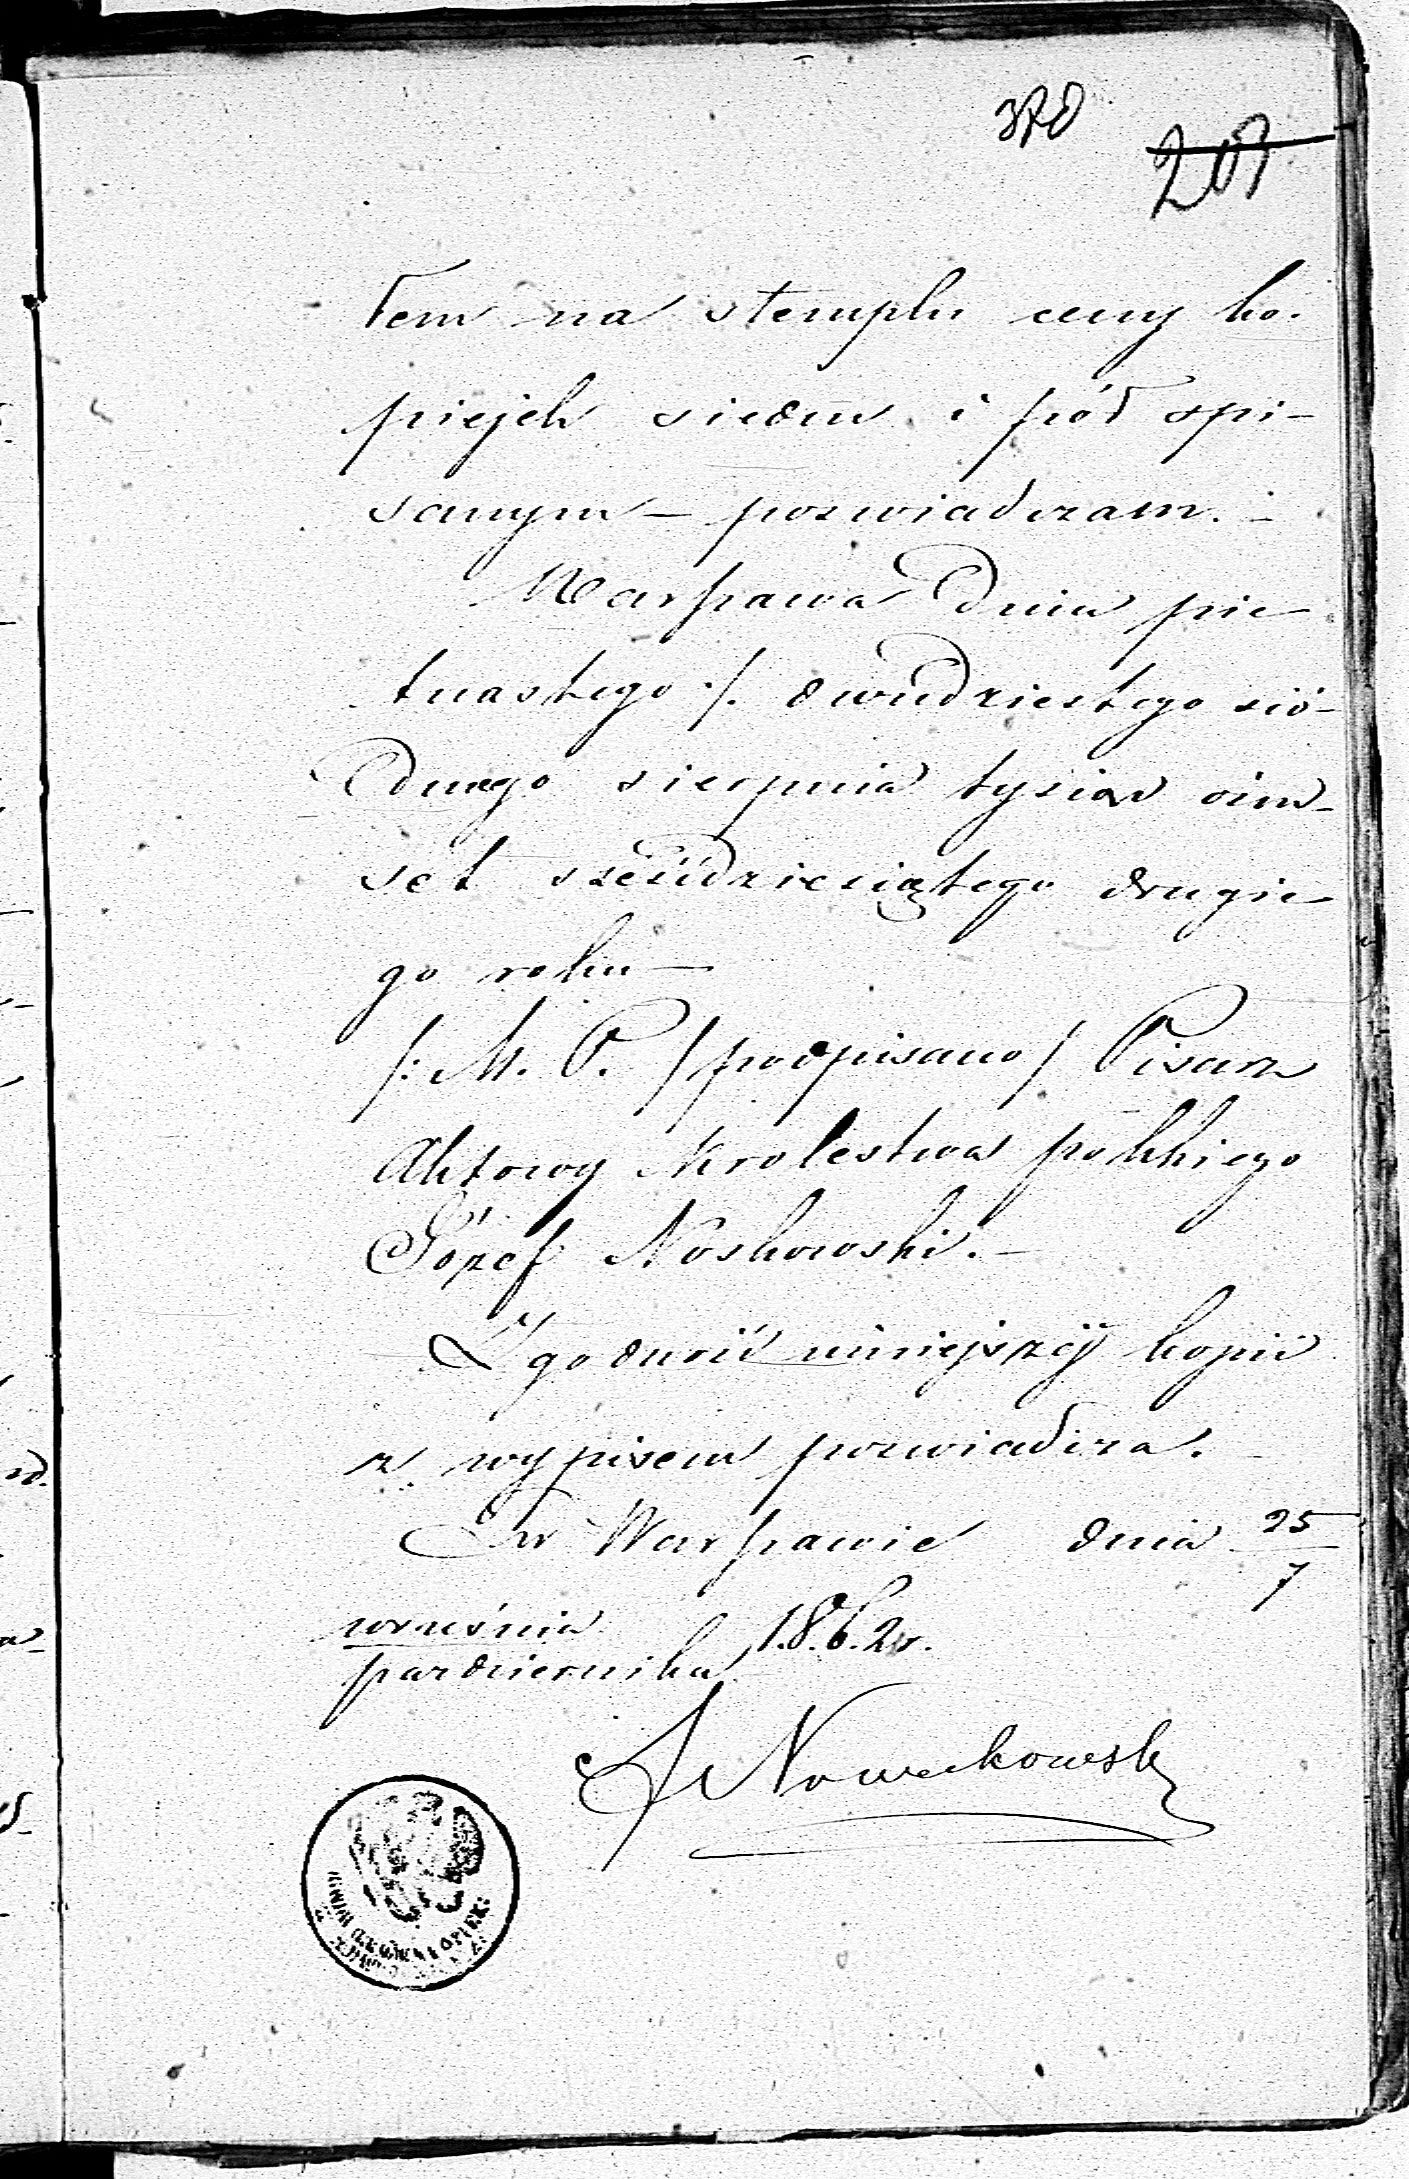 370
203
łem na stemplu ceny ko-
piejek siedm i pół spi-
sanym – poswiadczam. –
Warszawa dnia pie-
tnastego /. dwudziestego sió-
dmego sierpnia tysiąc ośm-
set sześćdziesiątego drugie-
go roku –
/: M. P. /podpisano/ Pisarz
Aktowy Krolestwa polskiego
Józef Noskowski. –
Zgodność niniejszéj kopii
z wypisem poswiadcza.
w Warszawie dnia 25/7
września
pazdziernika 1862 r.